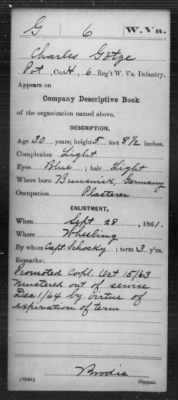 G 6 W. Va.
Charles Gotze
Pvt, Co. A, 6 Reg't W. Va. Infantry.
Appears on
Company Descriptive Book
of the organization named above.
DESCRIPTION.
Age 30 years; height 5 feet 8 1/2 inches.
Complexion Light
Eyes Blue; hair Light
Where born Brunswick, Germany
Occupation Plasterer
ENLISTMENT.
When Sept 28, 1861.
Where Wheeling
By whom Capt. Schocky; term 3 y'rs.
Remarks:
Promoted Corpl. Oct 15/63
Mustered out of service
Dec 1/64 by virtue of
expiration of term
Brodie
Copyist.